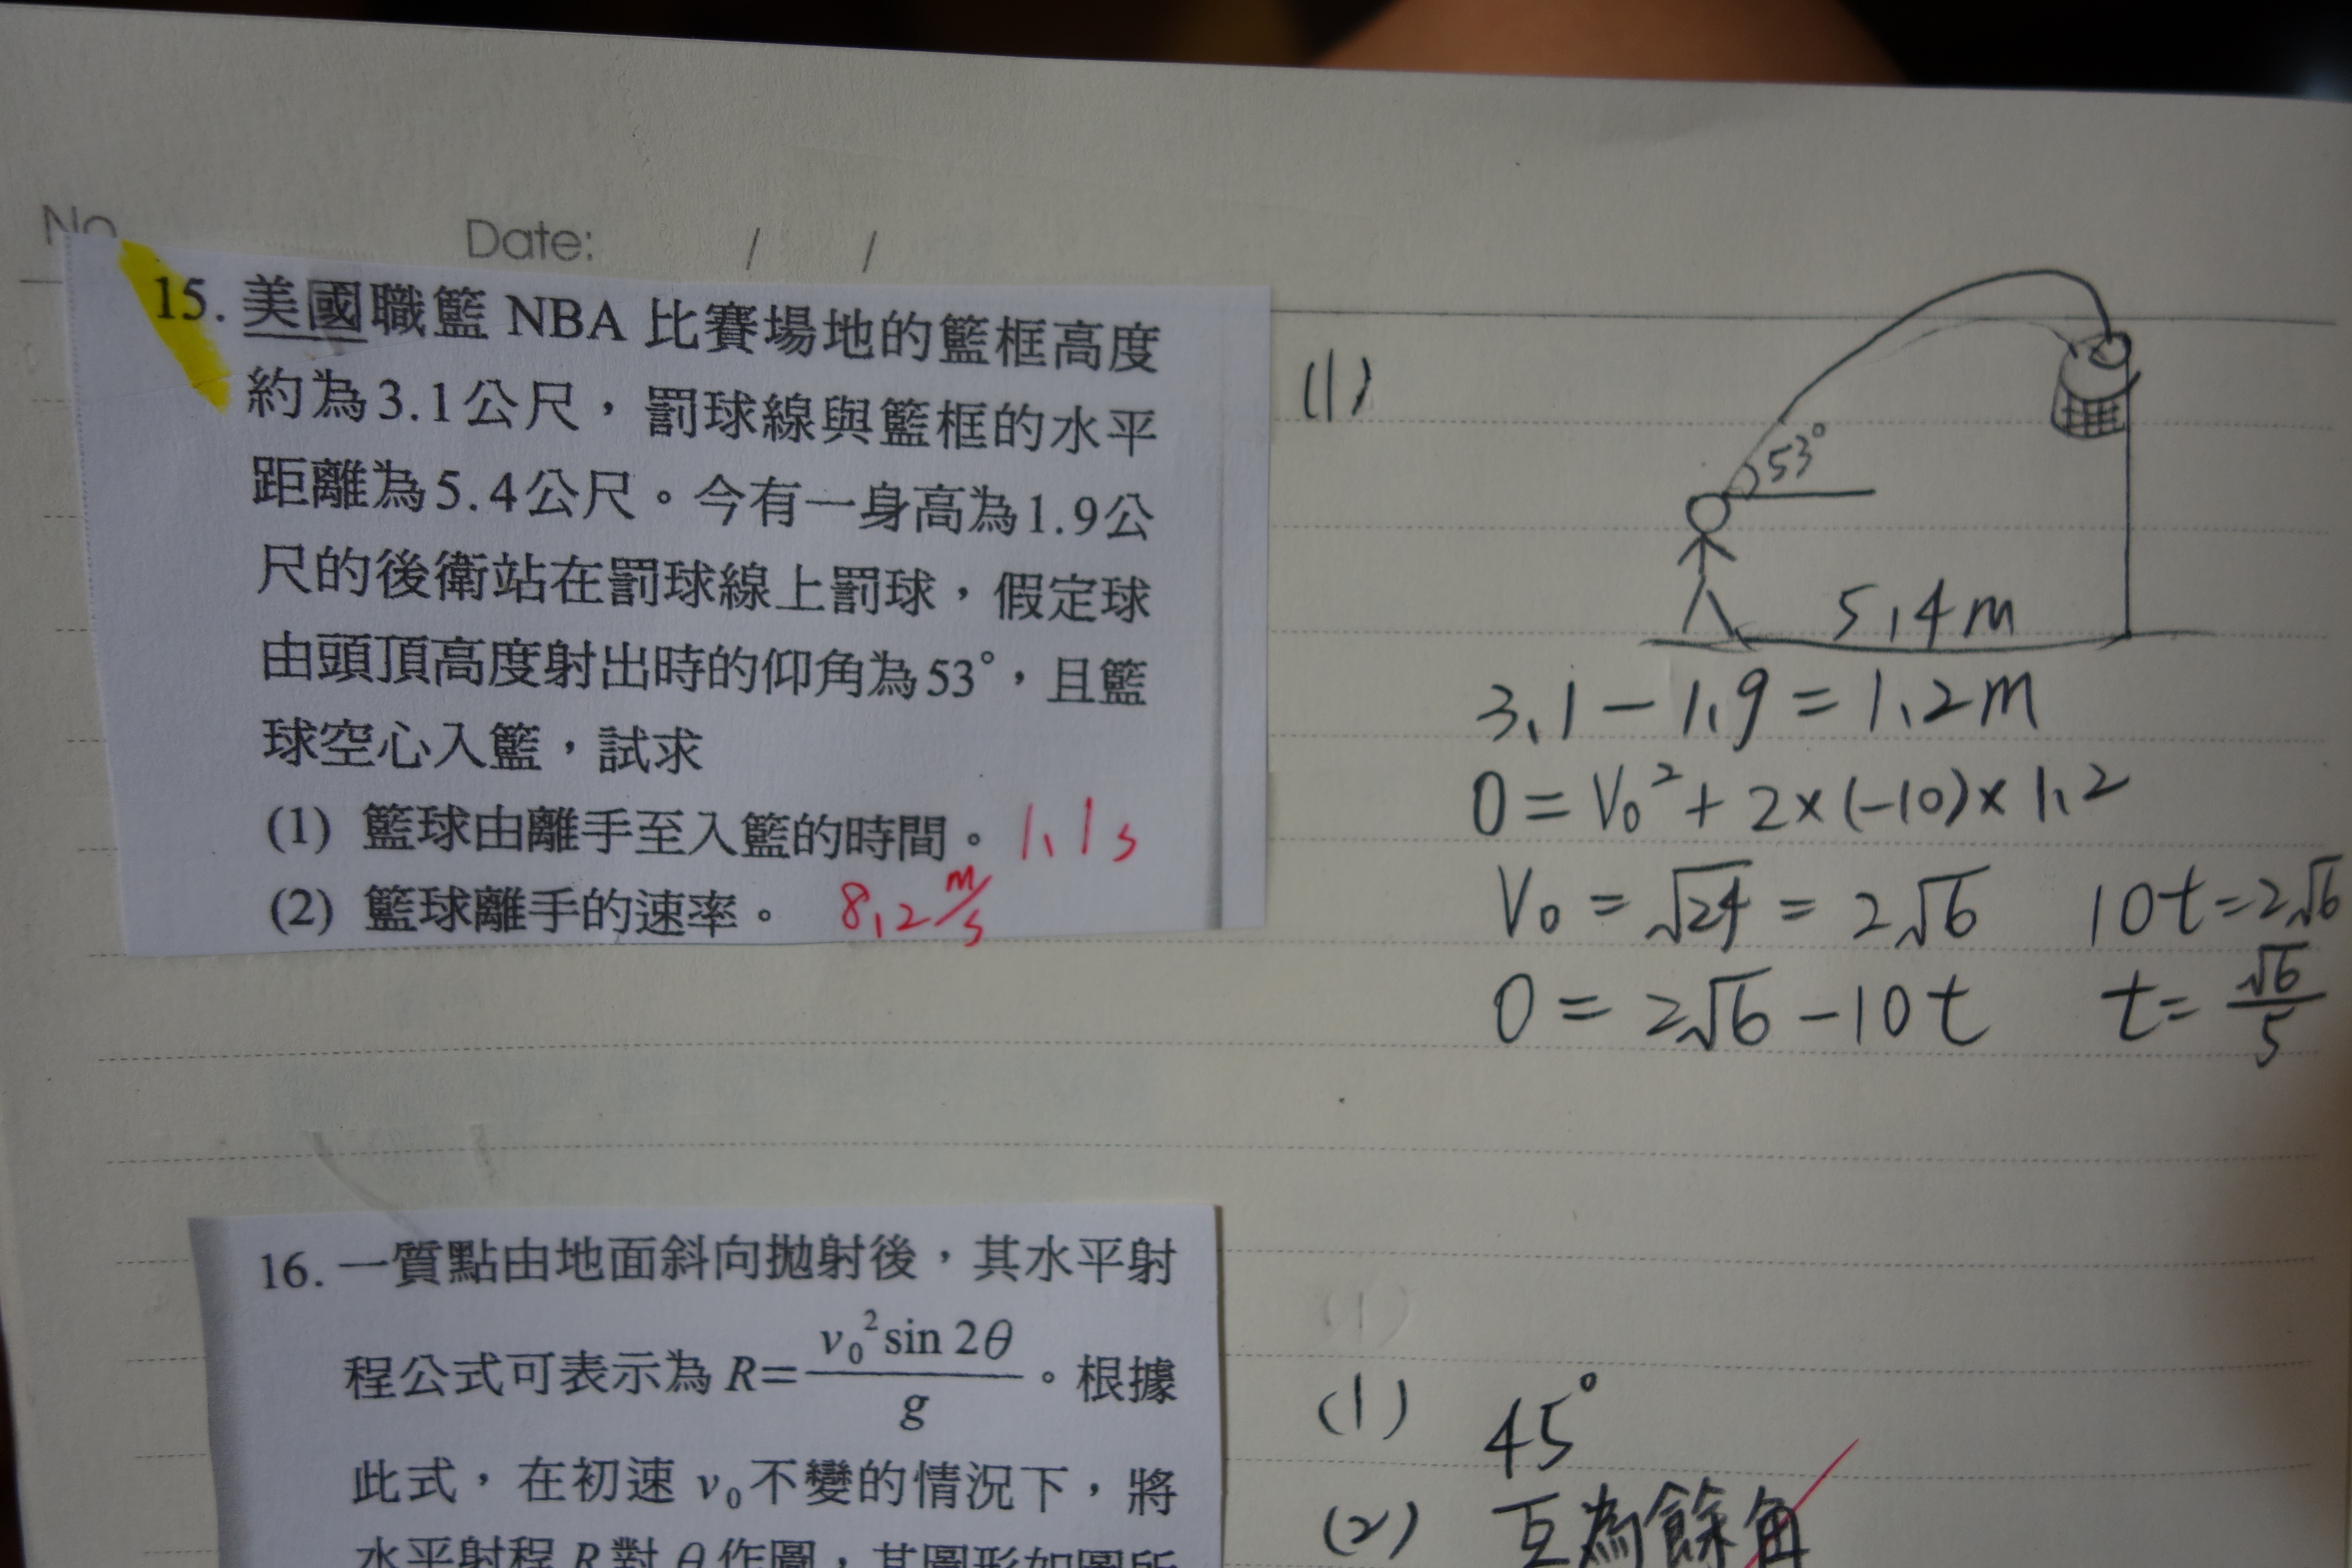 No
Date: / /
15. 美國職籃 NBA 比賽場地的籃框高度
約為3.1公尺，罰球線與籃框的水平
距離為5.4公尺。今有一身高為1.9公
尺的後衛站在罰球線上罰球，假定球
由頭頂高度射出時的仰角為53°，且籃
球空心入籃，試求
(1) 籃球由離手至入籃的時間。 1.1s
(2) 籃球離手的速率。 8.2 m/s
(1)
53°
5.4m
3.1－1.9＝1.2m
0＝V₀²＋2×(−10)×1.2
V₀＝√24＝2√6 10t＝2√6
0＝2√6－10t t＝√6/5
16. 一質點由地面斜向拋射後，其水平射
程公式可表示為 R=v₀² sin 2θ/g。根據
此式，在初速 v₀不變的情況下，將
水平射程 R 對 θ 作圖，其圖形如圖所
(1) 45°
(2) 互為餘角